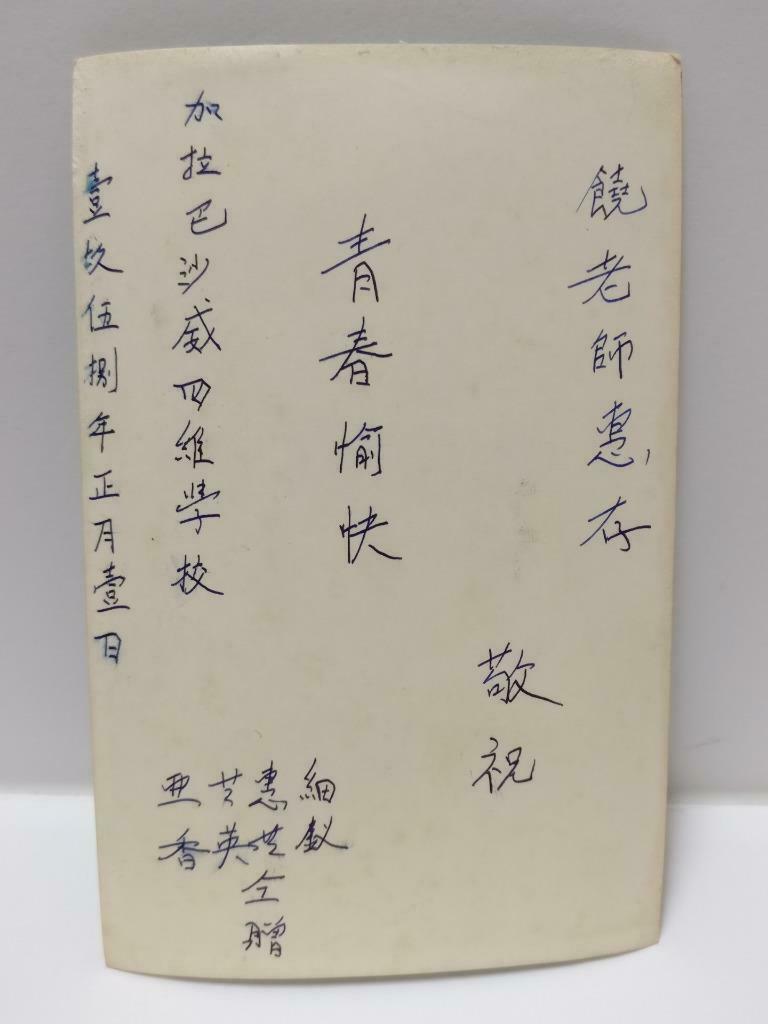 饒老師惠存
敬祝
青春愉快
加拉巴沙威四維學校
壹玖伍捌年正月壹日
細釵
惠芸
英
亜香
仝贈